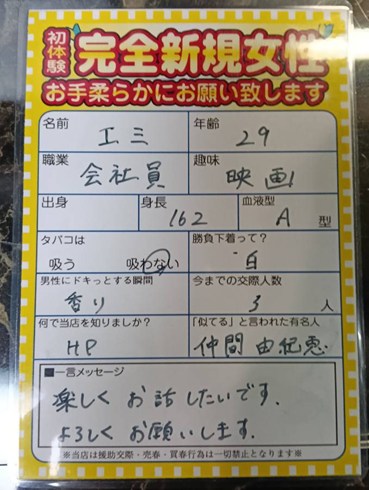 初体験 完全新規女性
お手柔らかにお願い致します
名前 エミ 年齢 29
職業 会社員 趣味 映画
出身 身長 162 血液型 A 型
タバコは 吸う 吸わない 勝負下着って? 白
男性にドキっとする瞬間 香り 今までの交際人数 3 人
何で当店を知りましか? HP 「似てる」と言われた有名人 仲間由紀恵
■一言メッセージ
楽しくお話したいです。
よろしくお願いします。
※当店は援助交際・売春・買春行為は一切禁止となります※